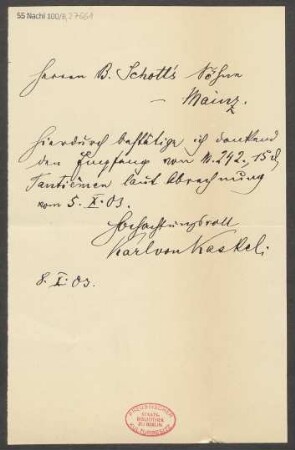 55 Nachl 100/B,
Herren B. Schott's Söhne
– Mainz.
Hierdurch bestätige ich dankend
den Empfang von M. 242,15 d
Tantièmen laut Abrechnung
vom 5. X. 03.
Hochachtungsvoll
Karl von Kaskel.
8. X. 03.
STAATS-
BIBLIOTHEK